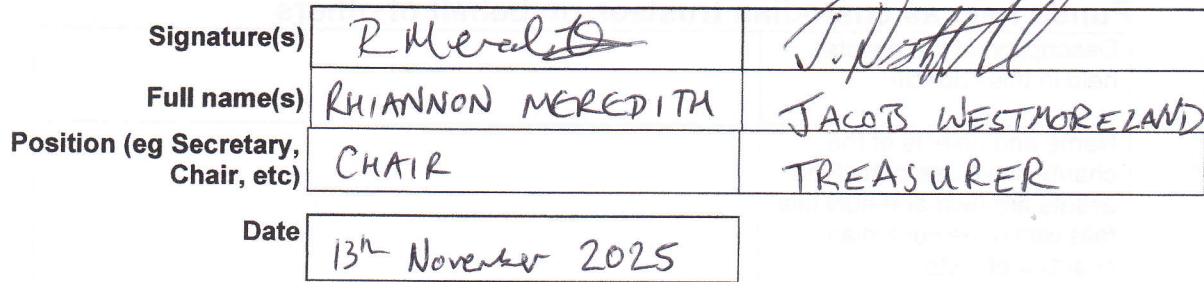 Signature(s) R Meredith
Full name(s) RHIANNON MEREDITH JACOB WESTMORELAND
Position (eg Secretary,
Chair, etc) CHAIR TREASURER
Date 13th November 2025